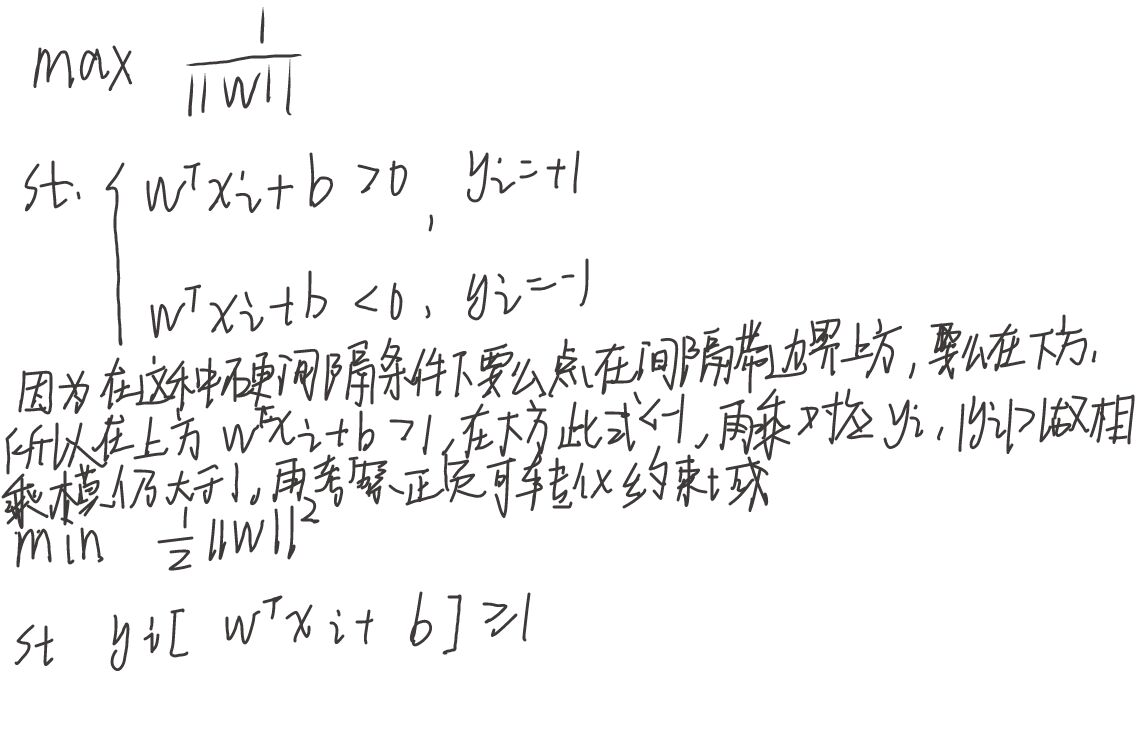 max 1/||W||
st. { wᵀxi + b >0, yi=+1
wᵀxi+b <0, yi=-1
因为在这种硬间隔条件下要么点在间隔带边界上方，要么在下方，
所以在上方 wᵀxi+b>1，在下方此式<-1，再乘对应 yi，|yi|>1故相
乘模仍大于1。再考察正负可转化约束域
min 1/2 ||W||²
st yi[ wᵀxi + b] ≥1